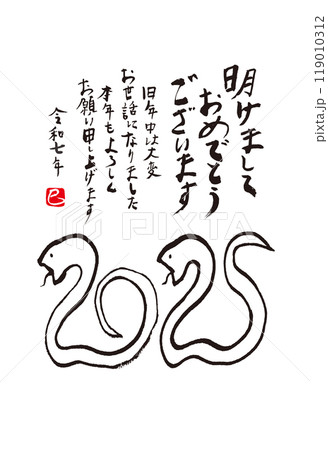 明けまして
おめでとう
ございます
旧年中は大変
お世話になりました
本年もよろしく
お願い申し上げます
令和七年
巳
2025
PIXTA
pixta.jp - 119010312